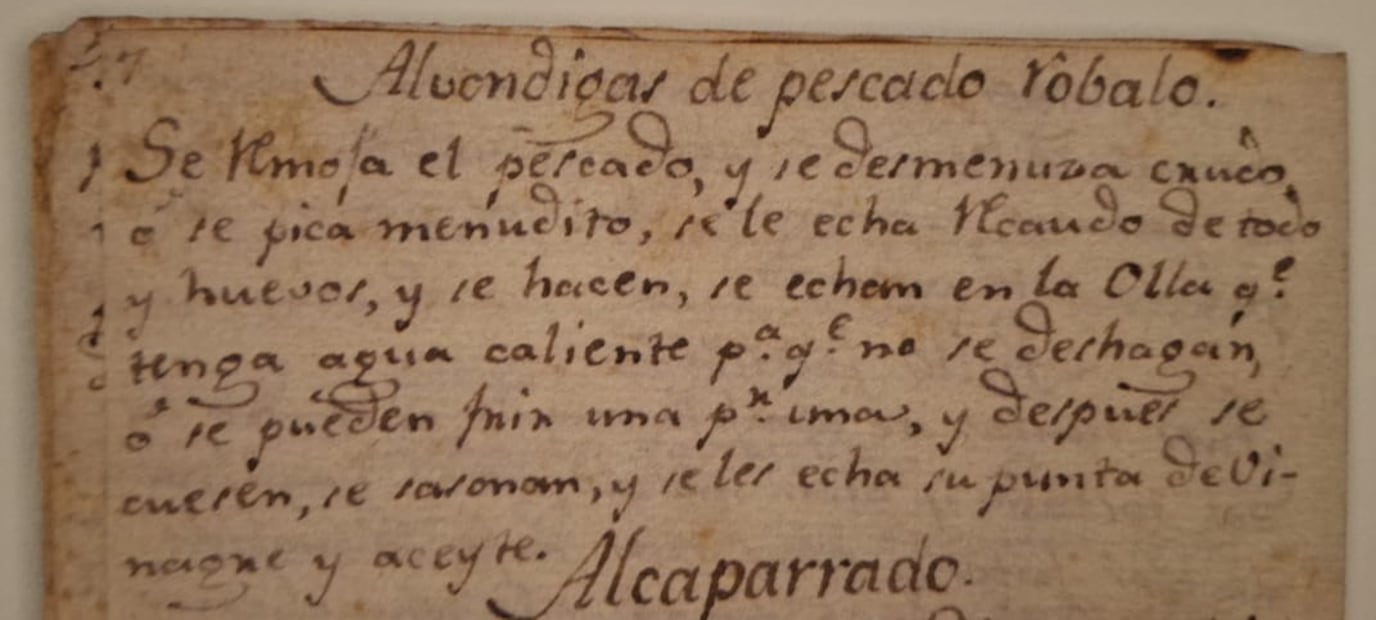 Alvondigas de pescado rôbalo.
Se Rmoja el pescado, y se desmenuza crudo,
ó se pica menudito, se le echa Rcaudo de todo
y huevos, y se hacen, se echam en la Olla q.e
tenga agua caliente p.a q.e no se deshagan,
ó se pueden frir una p.r una, y despues se
cuesen, se sasonan, y se les echa su punta de Vi-
nagre y aceyte.
Alcaparrado.